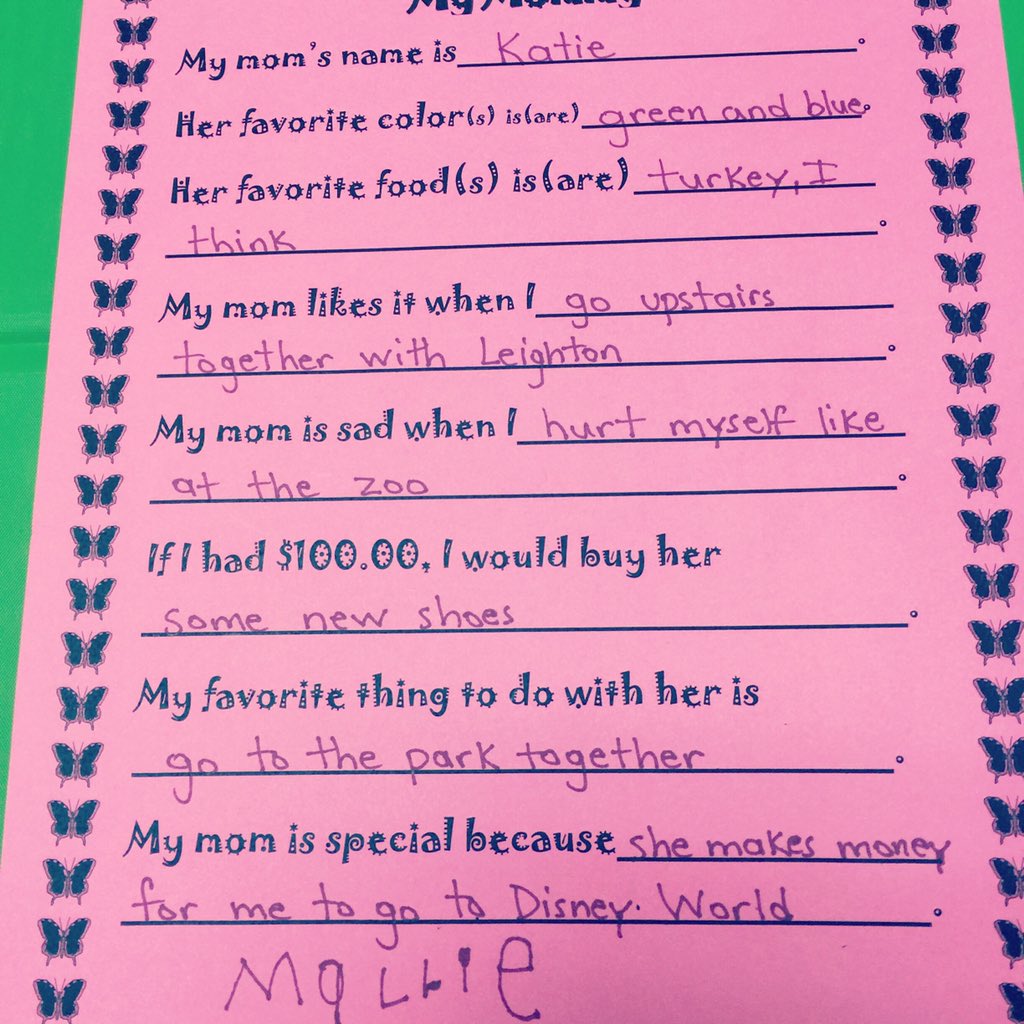 My mom's name is Katie.
Her favorite color(s) is(are) green and blue.
Her favorite food(s) is(are) turkey, I
think.
My mom likes it when I go upstairs
together with Leighton.
My mom is sad when I hurt myself like
at the zoo.
If I had $100.00, I would buy her
some new shoes.
My favorite thing to do with her is
go to the park together.
My mom is special because she makes money
for me to go to Disney World.
Mollie